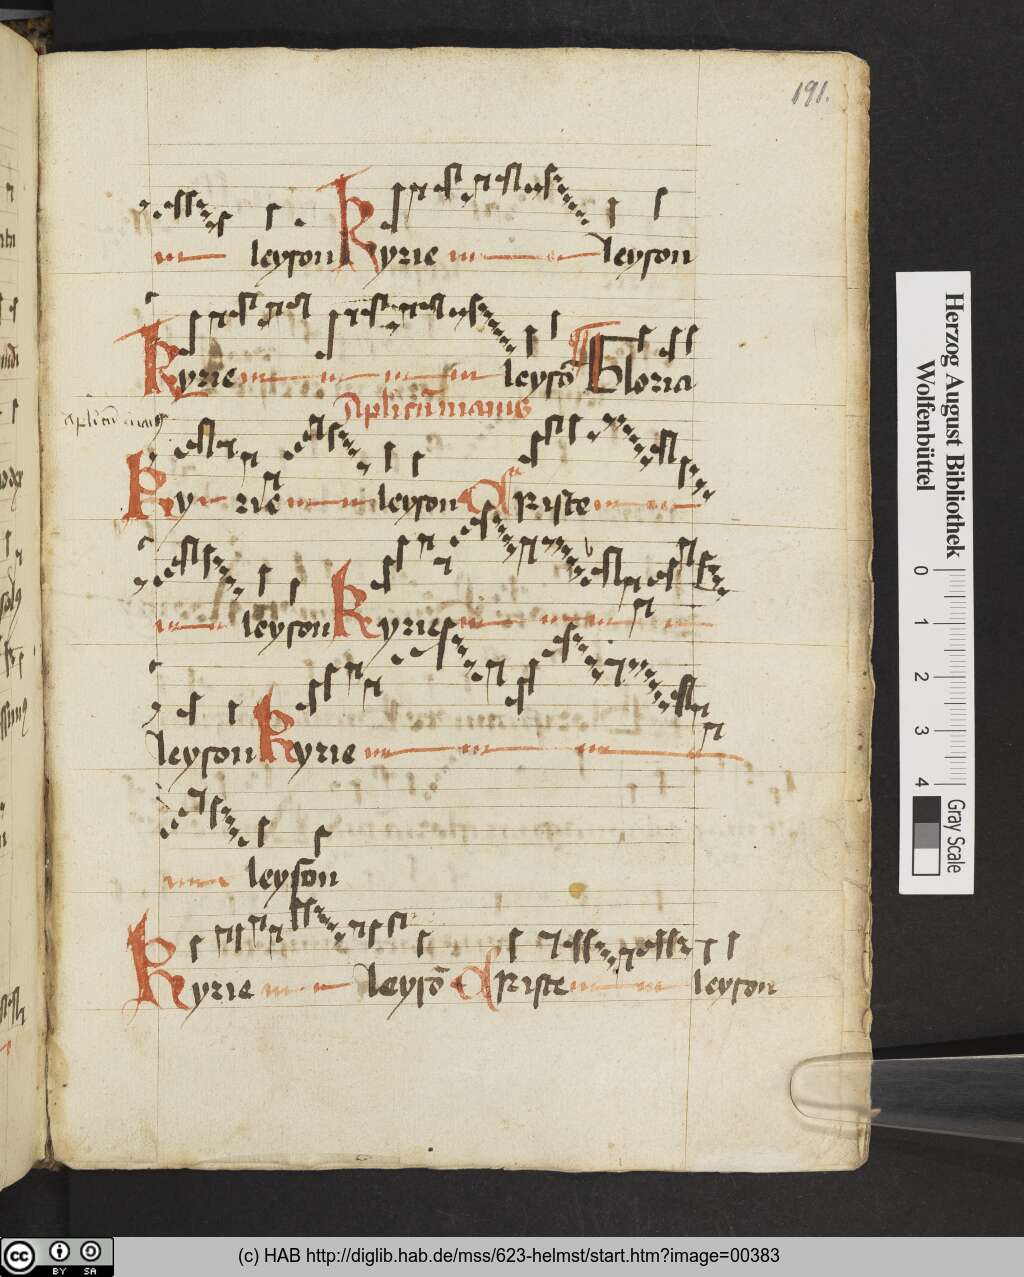 191.
leyson Kyrie leyson
Kyrie leysō Gloria
Ky rie leyson Xpiste
leyson Kyrie
leyson Kyrie
leyson
Kyrie leysō Xpiste leyson
Herzog August Bibliothek
Wolfenbüttel
0 1 2 3 4
Gray Scale
cc BY SA
(c) HAB http://diglib.hab.de/mss/623-helmst/start.htm?image=00383